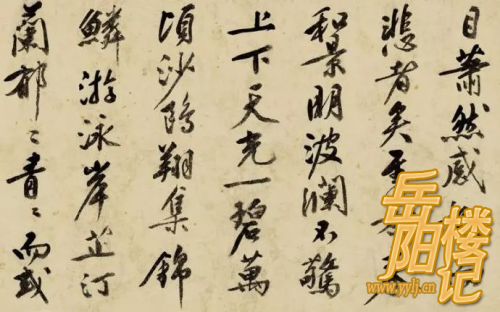 目蕭然感
悲者矣至
和景明波瀾不驚
上下天光一碧萬
頃沙鷗翔集錦
鱗游泳岸芷汀
蘭郁〻青〻而或
岳阳楼记
www.yylj.cn